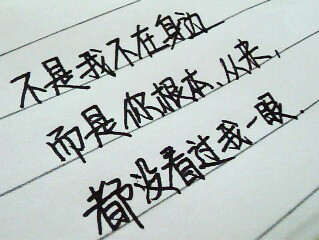 不是我不在身边
而是你根本、从来,
都没看过我一眼.